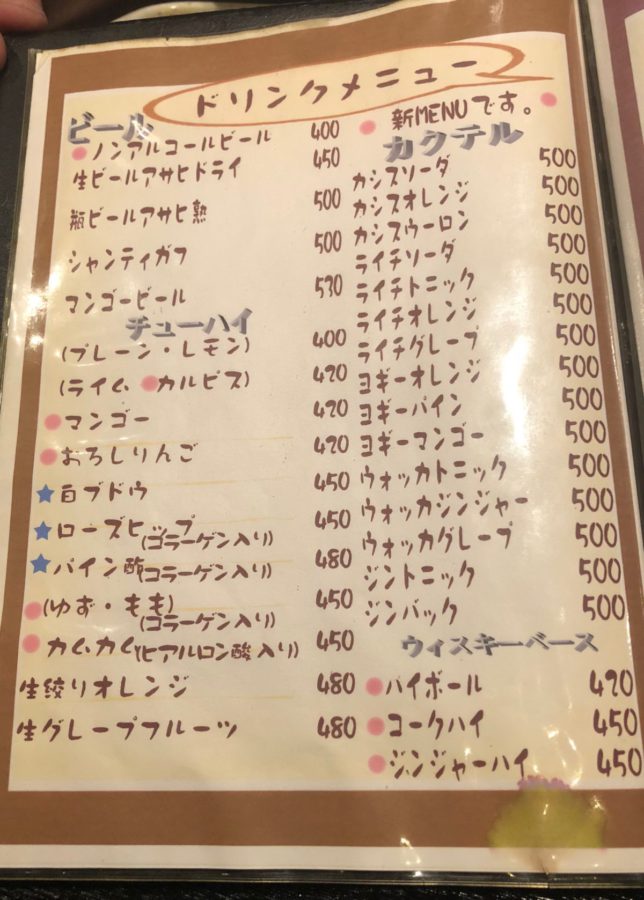 ドリンクメニュー
ビール
ノンアルコールビール 400
生ビールアサヒドライ 450
瓶ビールアサヒ熟 500
シャンティガフ 500
マンゴービール 530
チューハイ
(プレーン・レモン) 400
(ライム カルピス) 420
マンゴー 420
おろしりんご 420
白ブドウ 450
ローズヒップ(コラーゲン入り) 450
パイン酢(コラーゲン入り) 480
(ゆず・もも)(コラーゲン入り) 450
カムカム(ヒアルロン酸入り) 450
生絞りオレンジ 480
生グレープフルーツ 480
新MENUです。
カクテル
カシスソーダ 500
カシスオレンジ 500
カシスウーロン 500
ライチソーダ 500
ライチトニック 500
ライチオレンジ 500
ライチグレープ 500
ヨギーオレンジ 500
ヨギーパイン 500
ヨギーマンゴー 500
ウォッカトニック 500
ウォッカジンジャー 500
ウォッカグレープ 500
ジントニック 500
ジンバック 500
ウィスキーベース
ハイボール 420
コークハイ 450
ジンジャーハイ 450